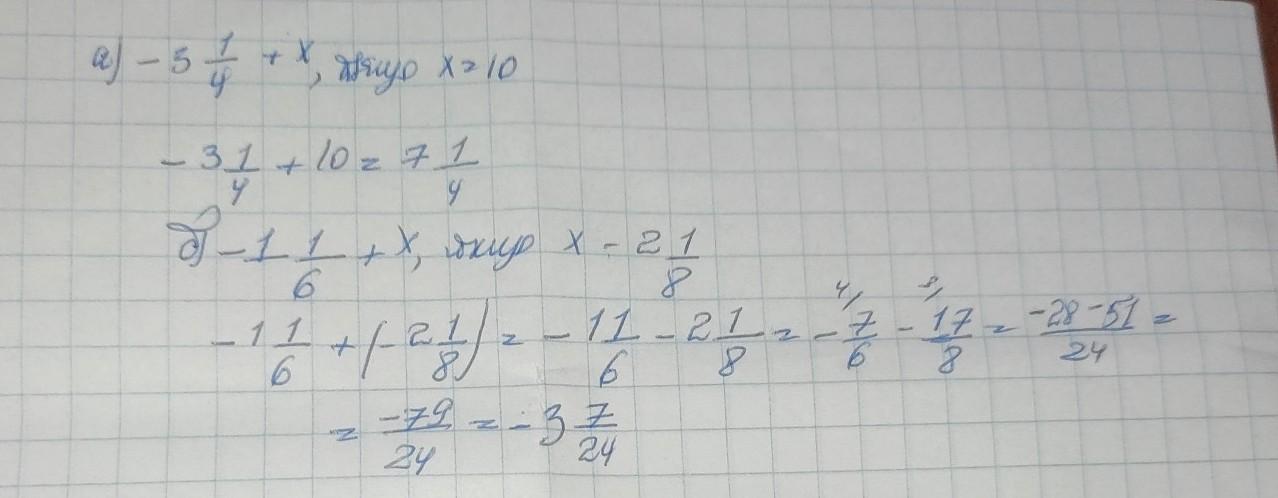 а) - 3 1/4 + x, якщо x = 10
- 3 1/4 + 10 = 7 1/4
б) - 1 1/6 + x, якщо x - 2 1/8
- 1 1/6 + (- 2 1/8) = - 1 1/6 - 2 1/8 = - 7/6 - 17/8 = -28 -51/24 =
= -79/24 = - 3 7/24